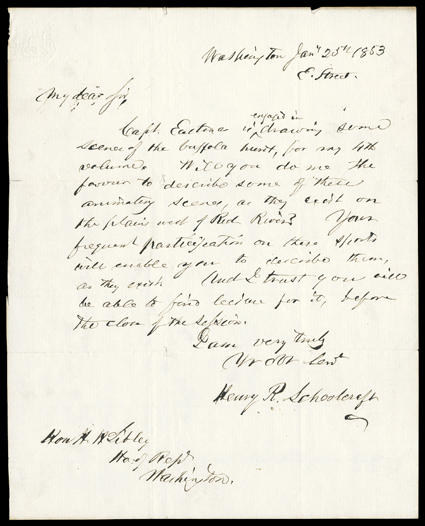 Washington Jany 25th 1853
E. Street.
My dear Sir,
Capt. Eastman is engaged in drawing some
scenes of the buffalo hunt, for my 4th
volume. Will you do me the
favour to describe some of these
animating scenes, as they exist on
the plain west of Red River? Your
frequent participation on these sports
will enable you to describe them,
as they exist. And I trust you will
be able to find leisure for it, before
the close of the session.
I am very truly
Yr obt Servt
Henry R. Schoolcraft
Hon H. H Sibley
Ho. of Rep.
Washington.